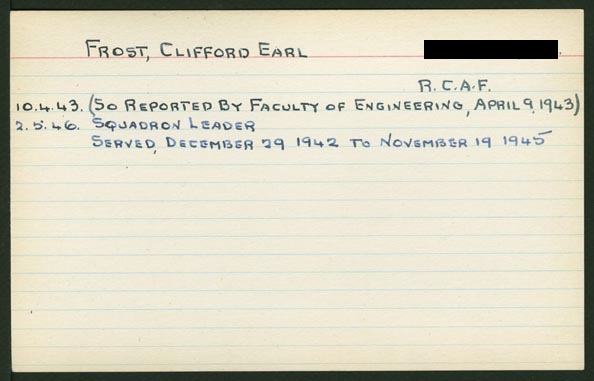 FROST, CLIFFORD EARL
R.C.A.F.
10.4.43. (SO REPORTED BY FACULTY OF ENGINEERING, APRIL 9, 1943)
2.5.46. SQUADRON LEADER
SERVED, DECEMBER 29 1942 TO NOVEMBER 19 1945